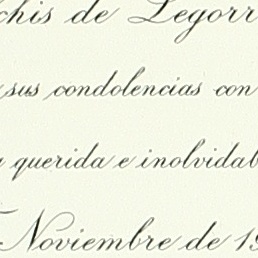 chis de Legorr
sus condolencias con
querida e inolvidab
Noviembre de 19